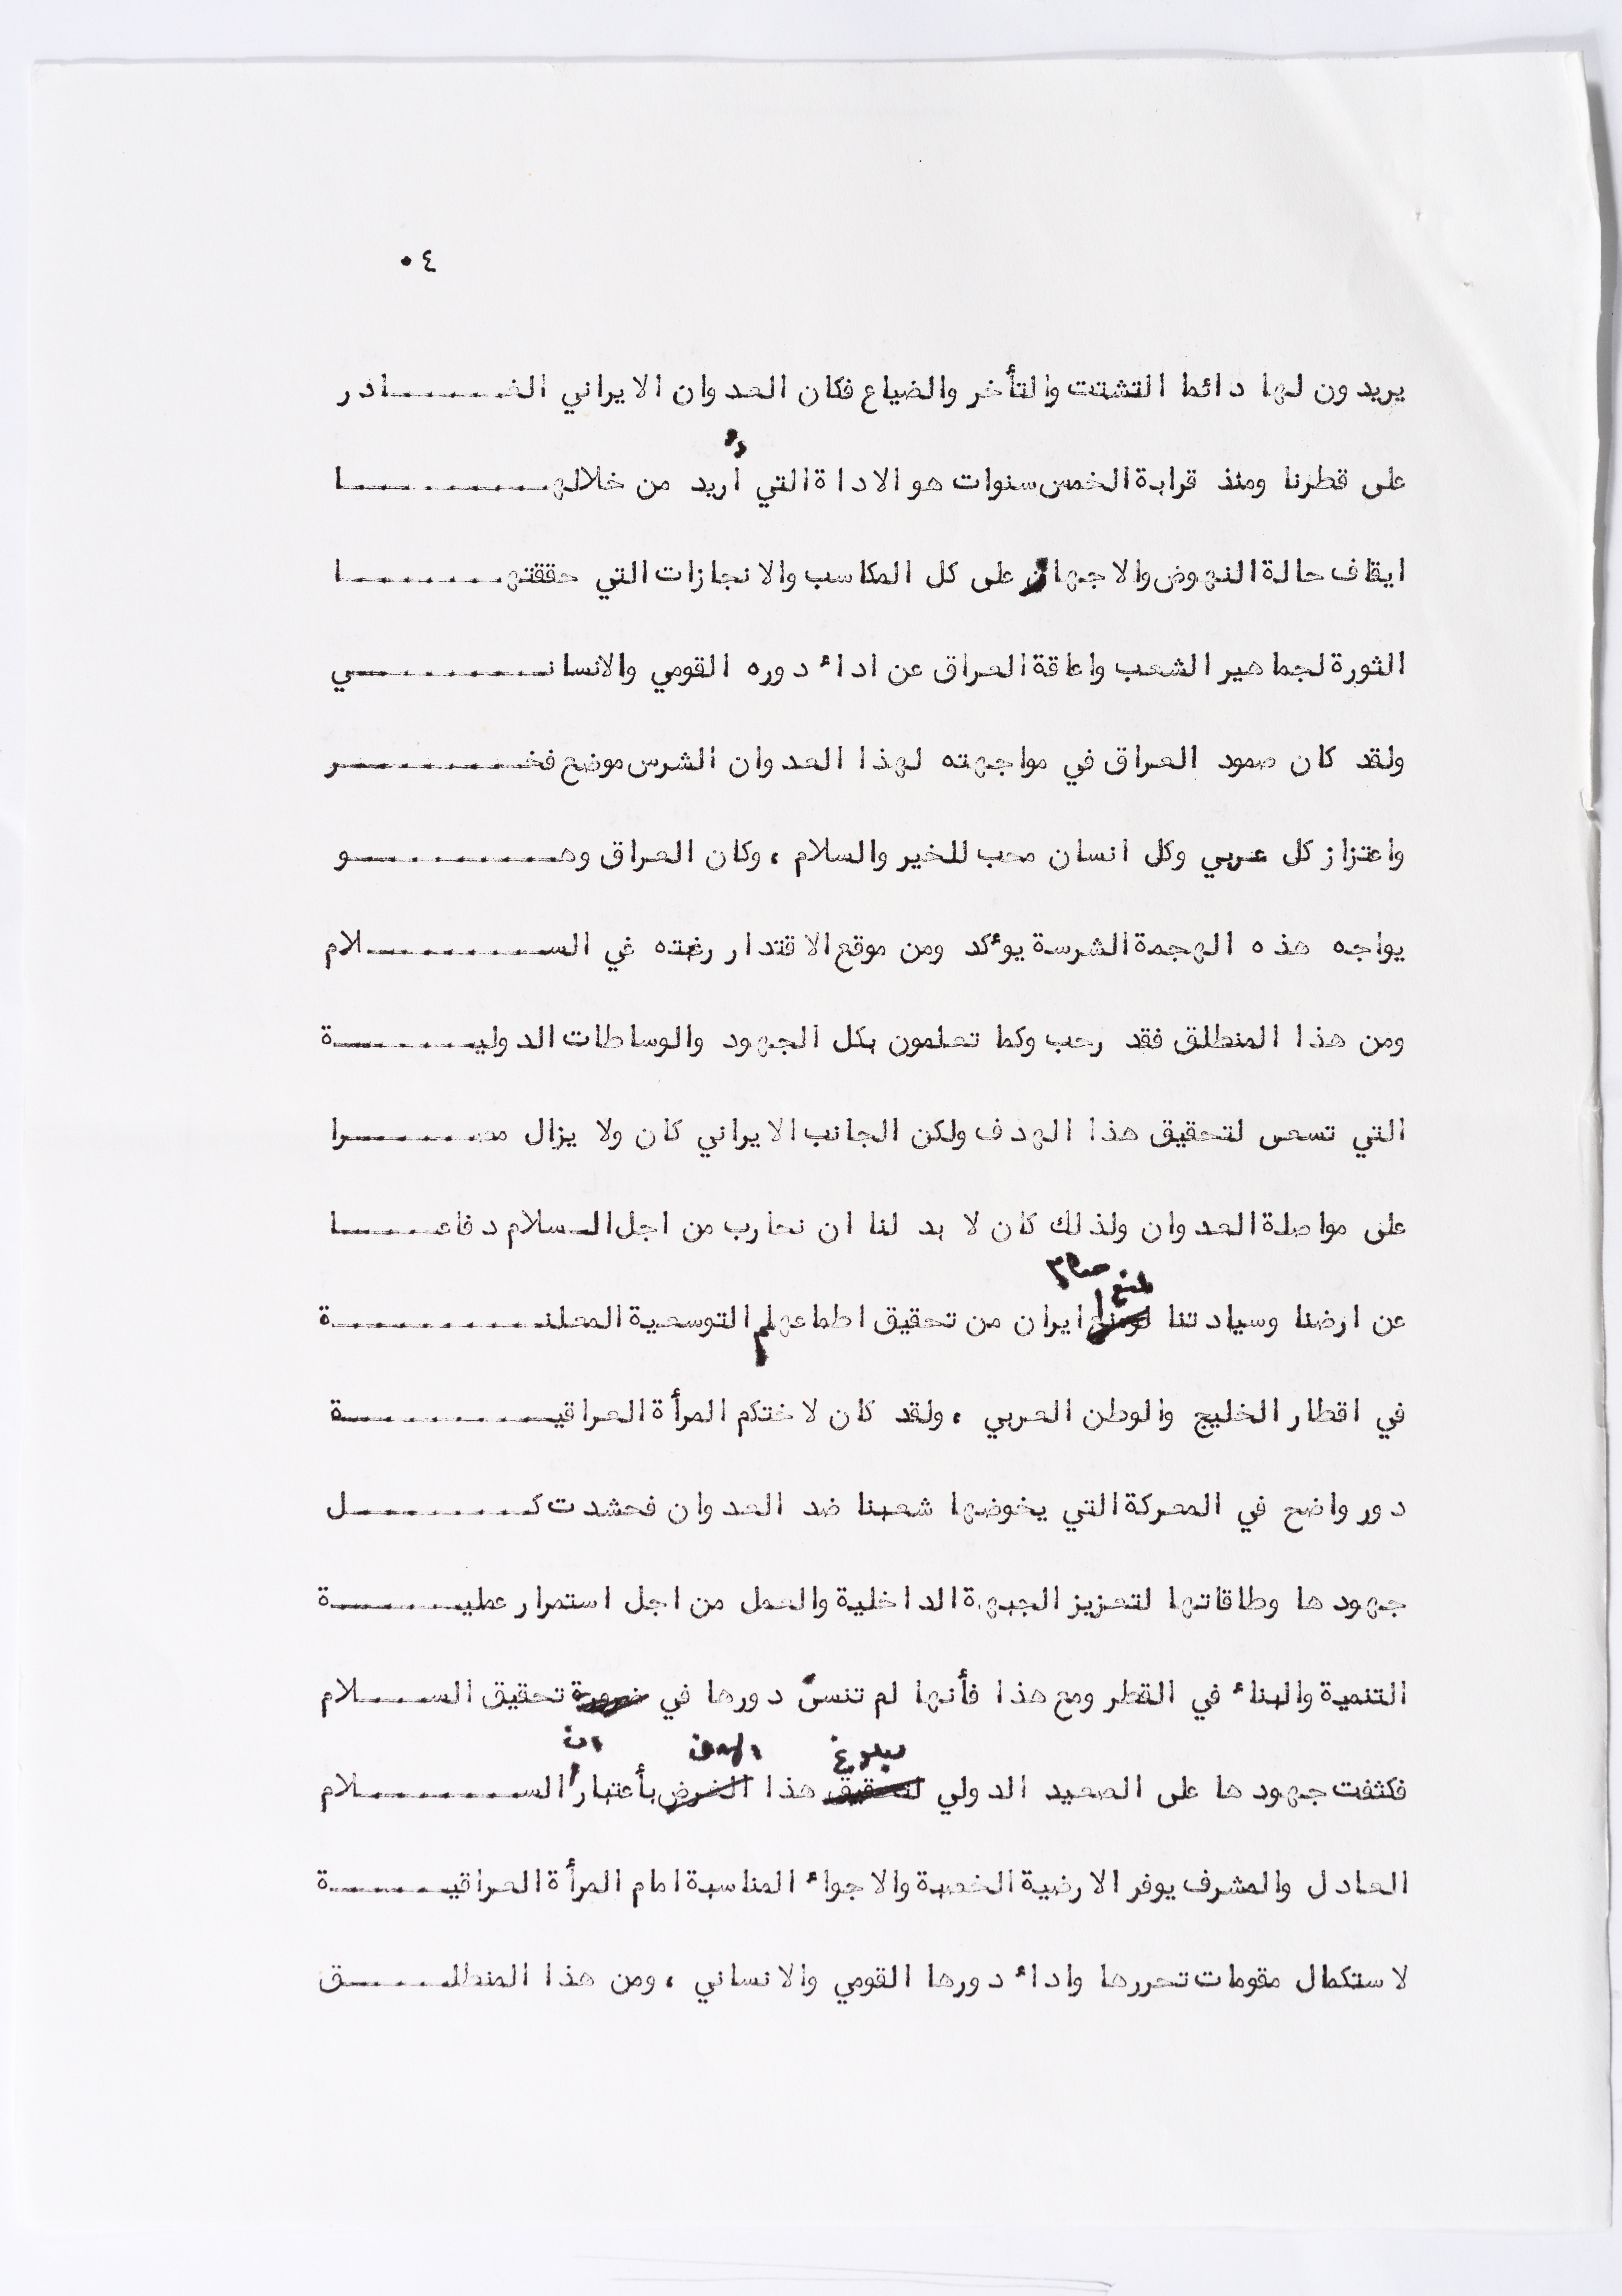 ٤٠
يريدون لها دائما التشتت والتأخر والضياع فكان العدوان الايراني الغـــــادر
على قطرنا ومنذ قرابة الخمس سنوات هو الاداة التي أُريد من خلالهـــــا
ايقاف حالة النهوض والاجهاز على كل المكاسب والانجازات التي حققتهـــــا
الثورة لجماهير الشعب واعاقة العراق عن اداء دوره القومي والانسانـــــي
ولقد كان صمود العراق في مواجهته لهذا العدوان الشرس موضع فخـــــر
واعتزاز كل عربي وكل انسان محب للخير والسلام ، وكان العراق وهـــــو
يواجه هذه الهجمة الشرسة يؤكد ومن موقع الاقتدار رغبته في الســـــلام
ومن هذا المنطلق فقد رحب وكما تعلمون بكل الجهود والوساطات الدوليـــــة
التي تسعى لتحقيق هذا الهدف ولكن الجانب الايراني كان ولا يزال مصـــــرا
على مواصلة العدوان ولذلك كان لا بد لنا ان نحارب من اجل الـسلام دفاعـــــا
لمنع حكام
عن ارضنا وسيادتنا ايران من تحقيق اطماعهم التوسعية المعلنـــــة
في اقطار الخليج والوطن العربي ، ولقد كان لاختكم المرأة العراقيـــــة
دور واضح في المعركة التي يخوضها شعبنا ضد العدوان فحشدت كـــــل
جهودها وطاقاتها لتعزيز الجبهة الداخلية والعمل من اجل استمرار عمليـــــة
التنمية والبناء في القطر ومع هذا فأنها لم تنسَ دورها في ضرورة تحقيق الســـــلام
لبلوغ الهدف ان
فكثفت جهودها على الصعيد الدولي لتحقيق هذا الغرض بأعتبار الســـــلام
العادل والمشرف يوفر الارضية الخصبة والاجواء المناسبة امام المرأة العراقيـــــة
لاستكمال مقومات تحررها واداء دورها القومي والانساني ، ومن هذا المنطلـــــق